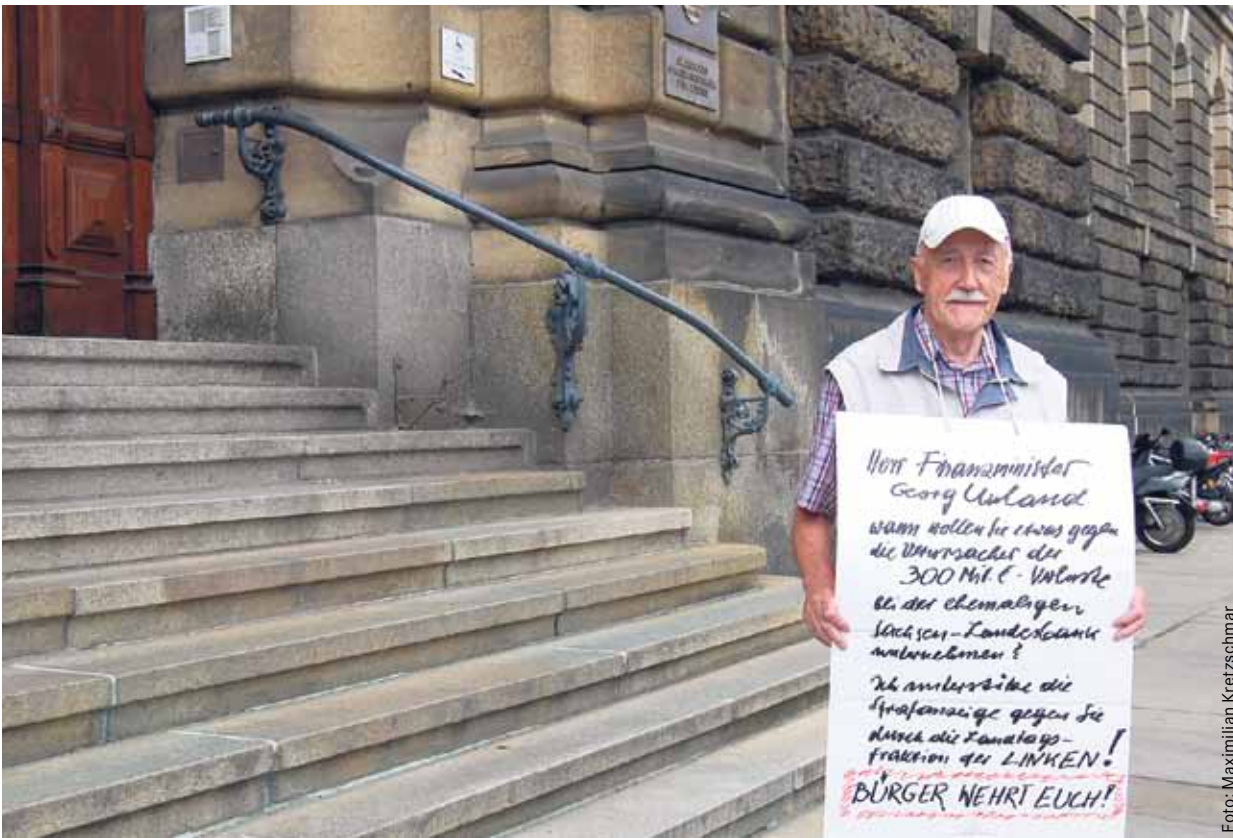 Herr Finanzminister
Georg Unland
wann wollen Sie etwas gegen
die Verursacher der
300 Mil. € - Verluste
bei der ehemaligen
Sachsen-Landesbank
unternehmen?
Ich unterstütze die
Strafanzeige gegen Sie
durch die Landtags-
fraktion der LINKEN!
BÜRGER WEHRT EUCH!
Foto: Maximilian Kretzschmar